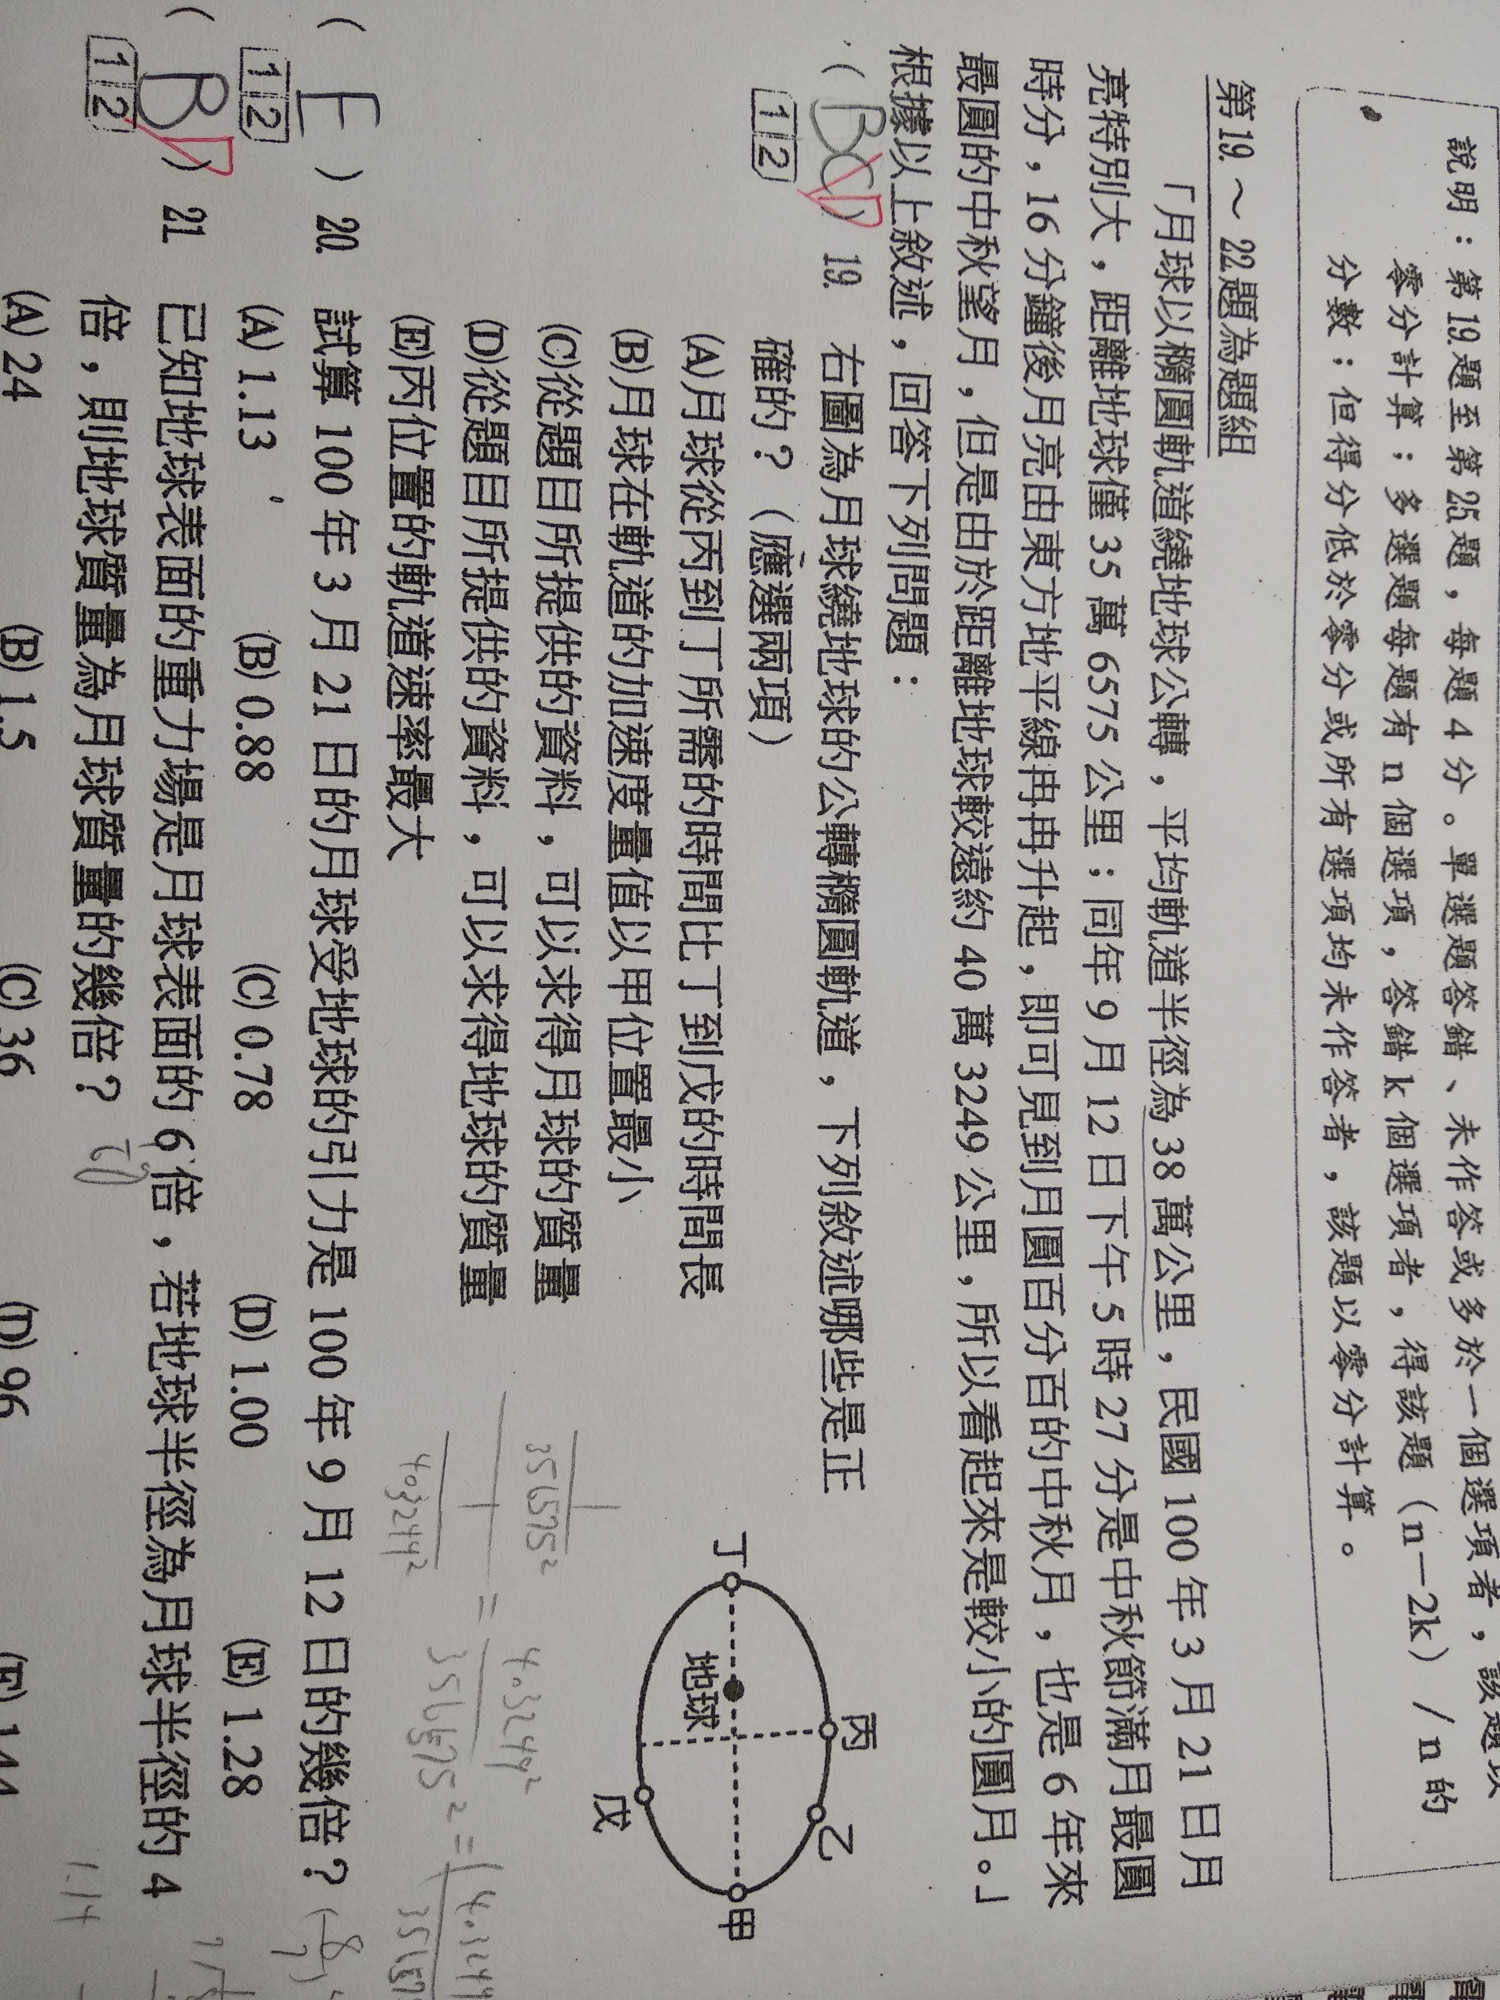 說明：第19.題至第25.題，每題4分。單選題答錯、未作答或多於一個選項者，該題以
零分計算；多選題每題有n個選項，答錯k個選項者，得該題（n－2k）/n的
分數；但得分低於零分或所有選項均未作答者，該題以零分計算。
第19.～22.題為題組
「月球以橢圓軌道繞地球公轉，平均軌道半徑為38萬公里，民國100年3月21日月
亮特別大，距離地球僅35萬6575公里；同年9月12日下午5時27分是中秋節滿月最圓
時分，16分鐘後月亮由東方地平線冉冉升起，即可見到月圓百分百的中秋月，也是6年來
最圓的中秋望月，但是由於距離地球較遠約40萬3249公里，所以看起來是較小的圓月。」
根據以上敘述，回答下列問題：
（BCD）19. 右圖為月球繞地球的公轉橢圓軌道，下列敘述哪些是正
12 確的？（應選兩項）
(A)月球從丙到丁所需的時間比丁到戊的時間長
(B)月球在軌道的加速度量值以甲位置最小
(C)從題目所提供的資料，可以求得月球的質量
(D)從題目所提供的資料，可以求得地球的質量
(E)丙位置的軌道速率最大
丁
地球
丙
乙
戊
甲
1
356575²
1
403249²
=
403249²
356575²
=
（E）20. 試算100年3月21日的月球受地球的引力是100年9月12日的幾倍？
12 (A) 1.13 (B) 0.88 (C) 0.78 (D) 1.00 (E) 1.28
（B D）21. 已知地球表面的重力場是月球表面的6倍，若地球半徑為月球半徑的4
12 倍，則地球質量為月球質量的幾倍？
(A) 24 (B) 1.5 (C) 36 (D) 96 (E) 144
1.14